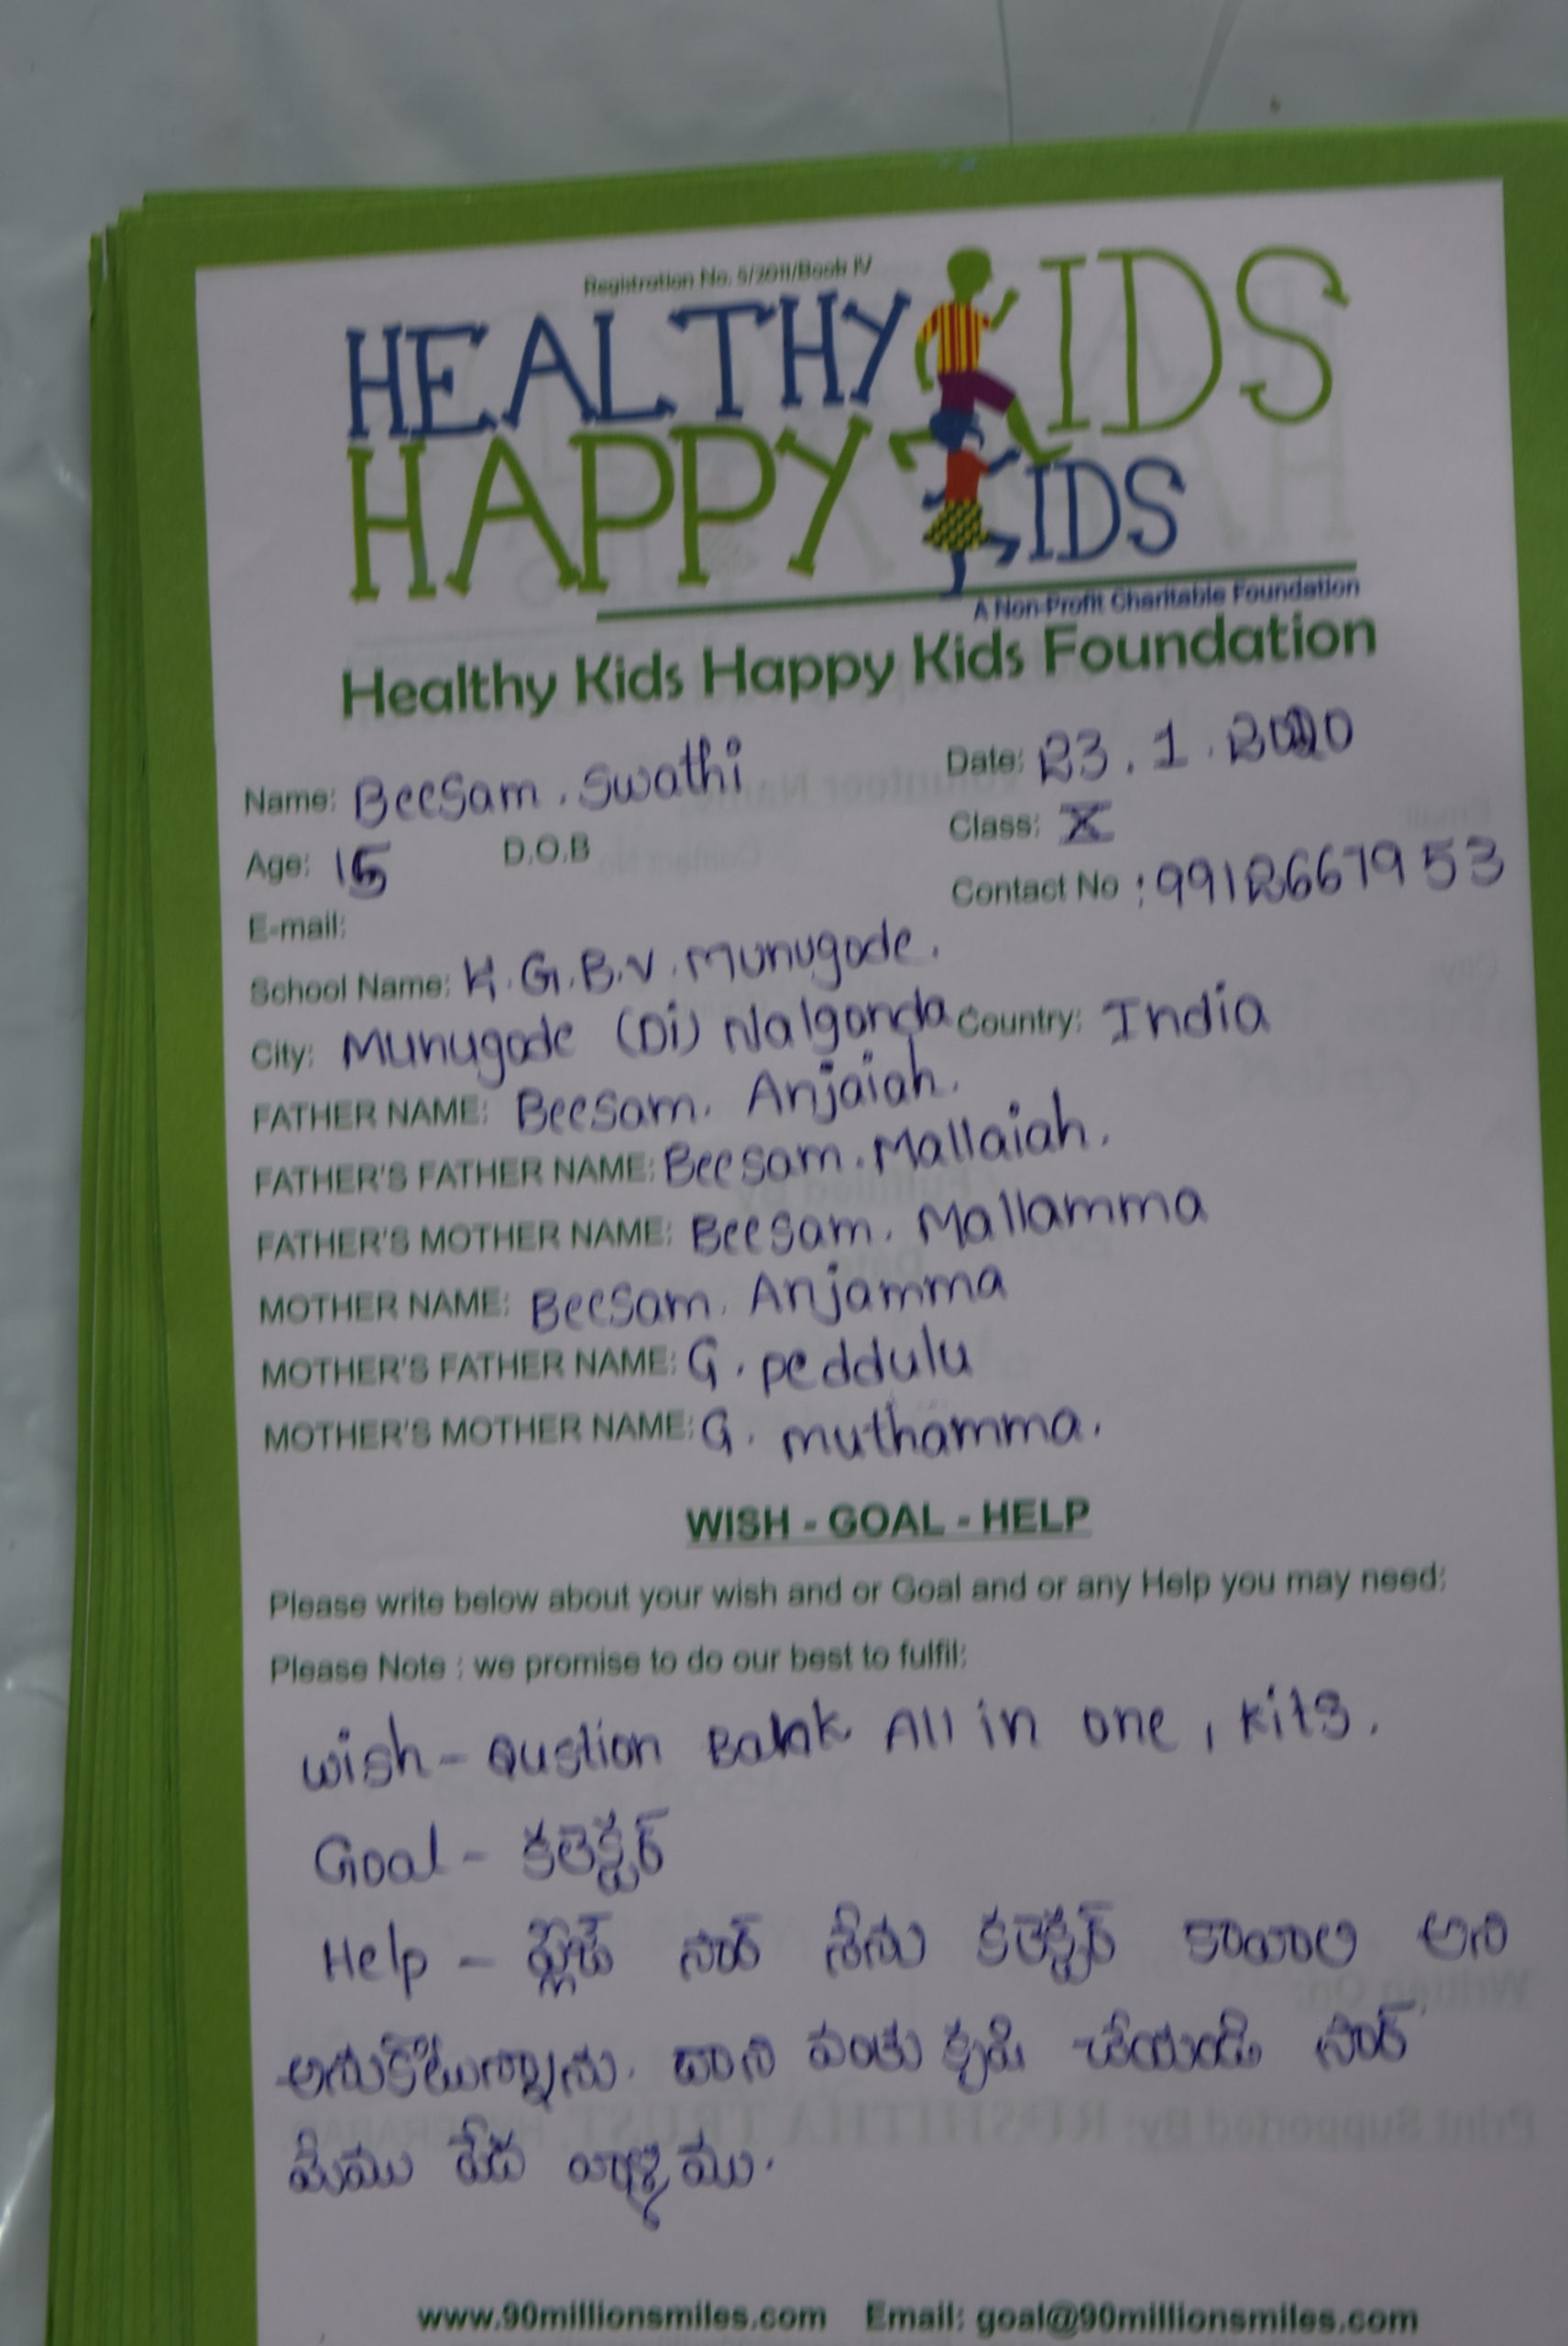 Registration No. 5/2011/Book IV
HEALTHY KIDS
HAPPY KIDS
A Non-Profit Charitable Foundation
Healthy Kids Happy Kids Foundation
Name: Beesam . Swathi Date: 23 . 1 . 2020
Age: 15 D.O.B Class: X
E-mail: Contact No : 9912667953
School Name: K.G.B.V. Munugode.
City: Munugode (Di) Nalgonda Country: India
FATHER NAME: Beesam. Anjaiah.
FATHER'S FATHER NAME: Beesam. Mallaiah.
FATHER'S MOTHER NAME: Beesam. Mallamma
MOTHER NAME: Beesam. Anjamma
MOTHER'S FATHER NAME: G. peddulu
MOTHER'S MOTHER NAME: G. muthamma.
WISH - GOAL - HELP
Please write below about your wish and or Goal and or any Help you may need:
Please Note : we promise to do our best to fulfil:
Wish - Qustion Bank All in one, Kits.
Goal - కలెక్టర్
Help - ప్లీజ్ సార్ నేను కలెక్టర్ కావాలి అని
అనుకొటున్నాను. దాని వంతు కృషి చేయండి సార్
మేము పేద వాళ్ళము.
www.90millionsmiles.com Email: goal@90millionsmiles.com